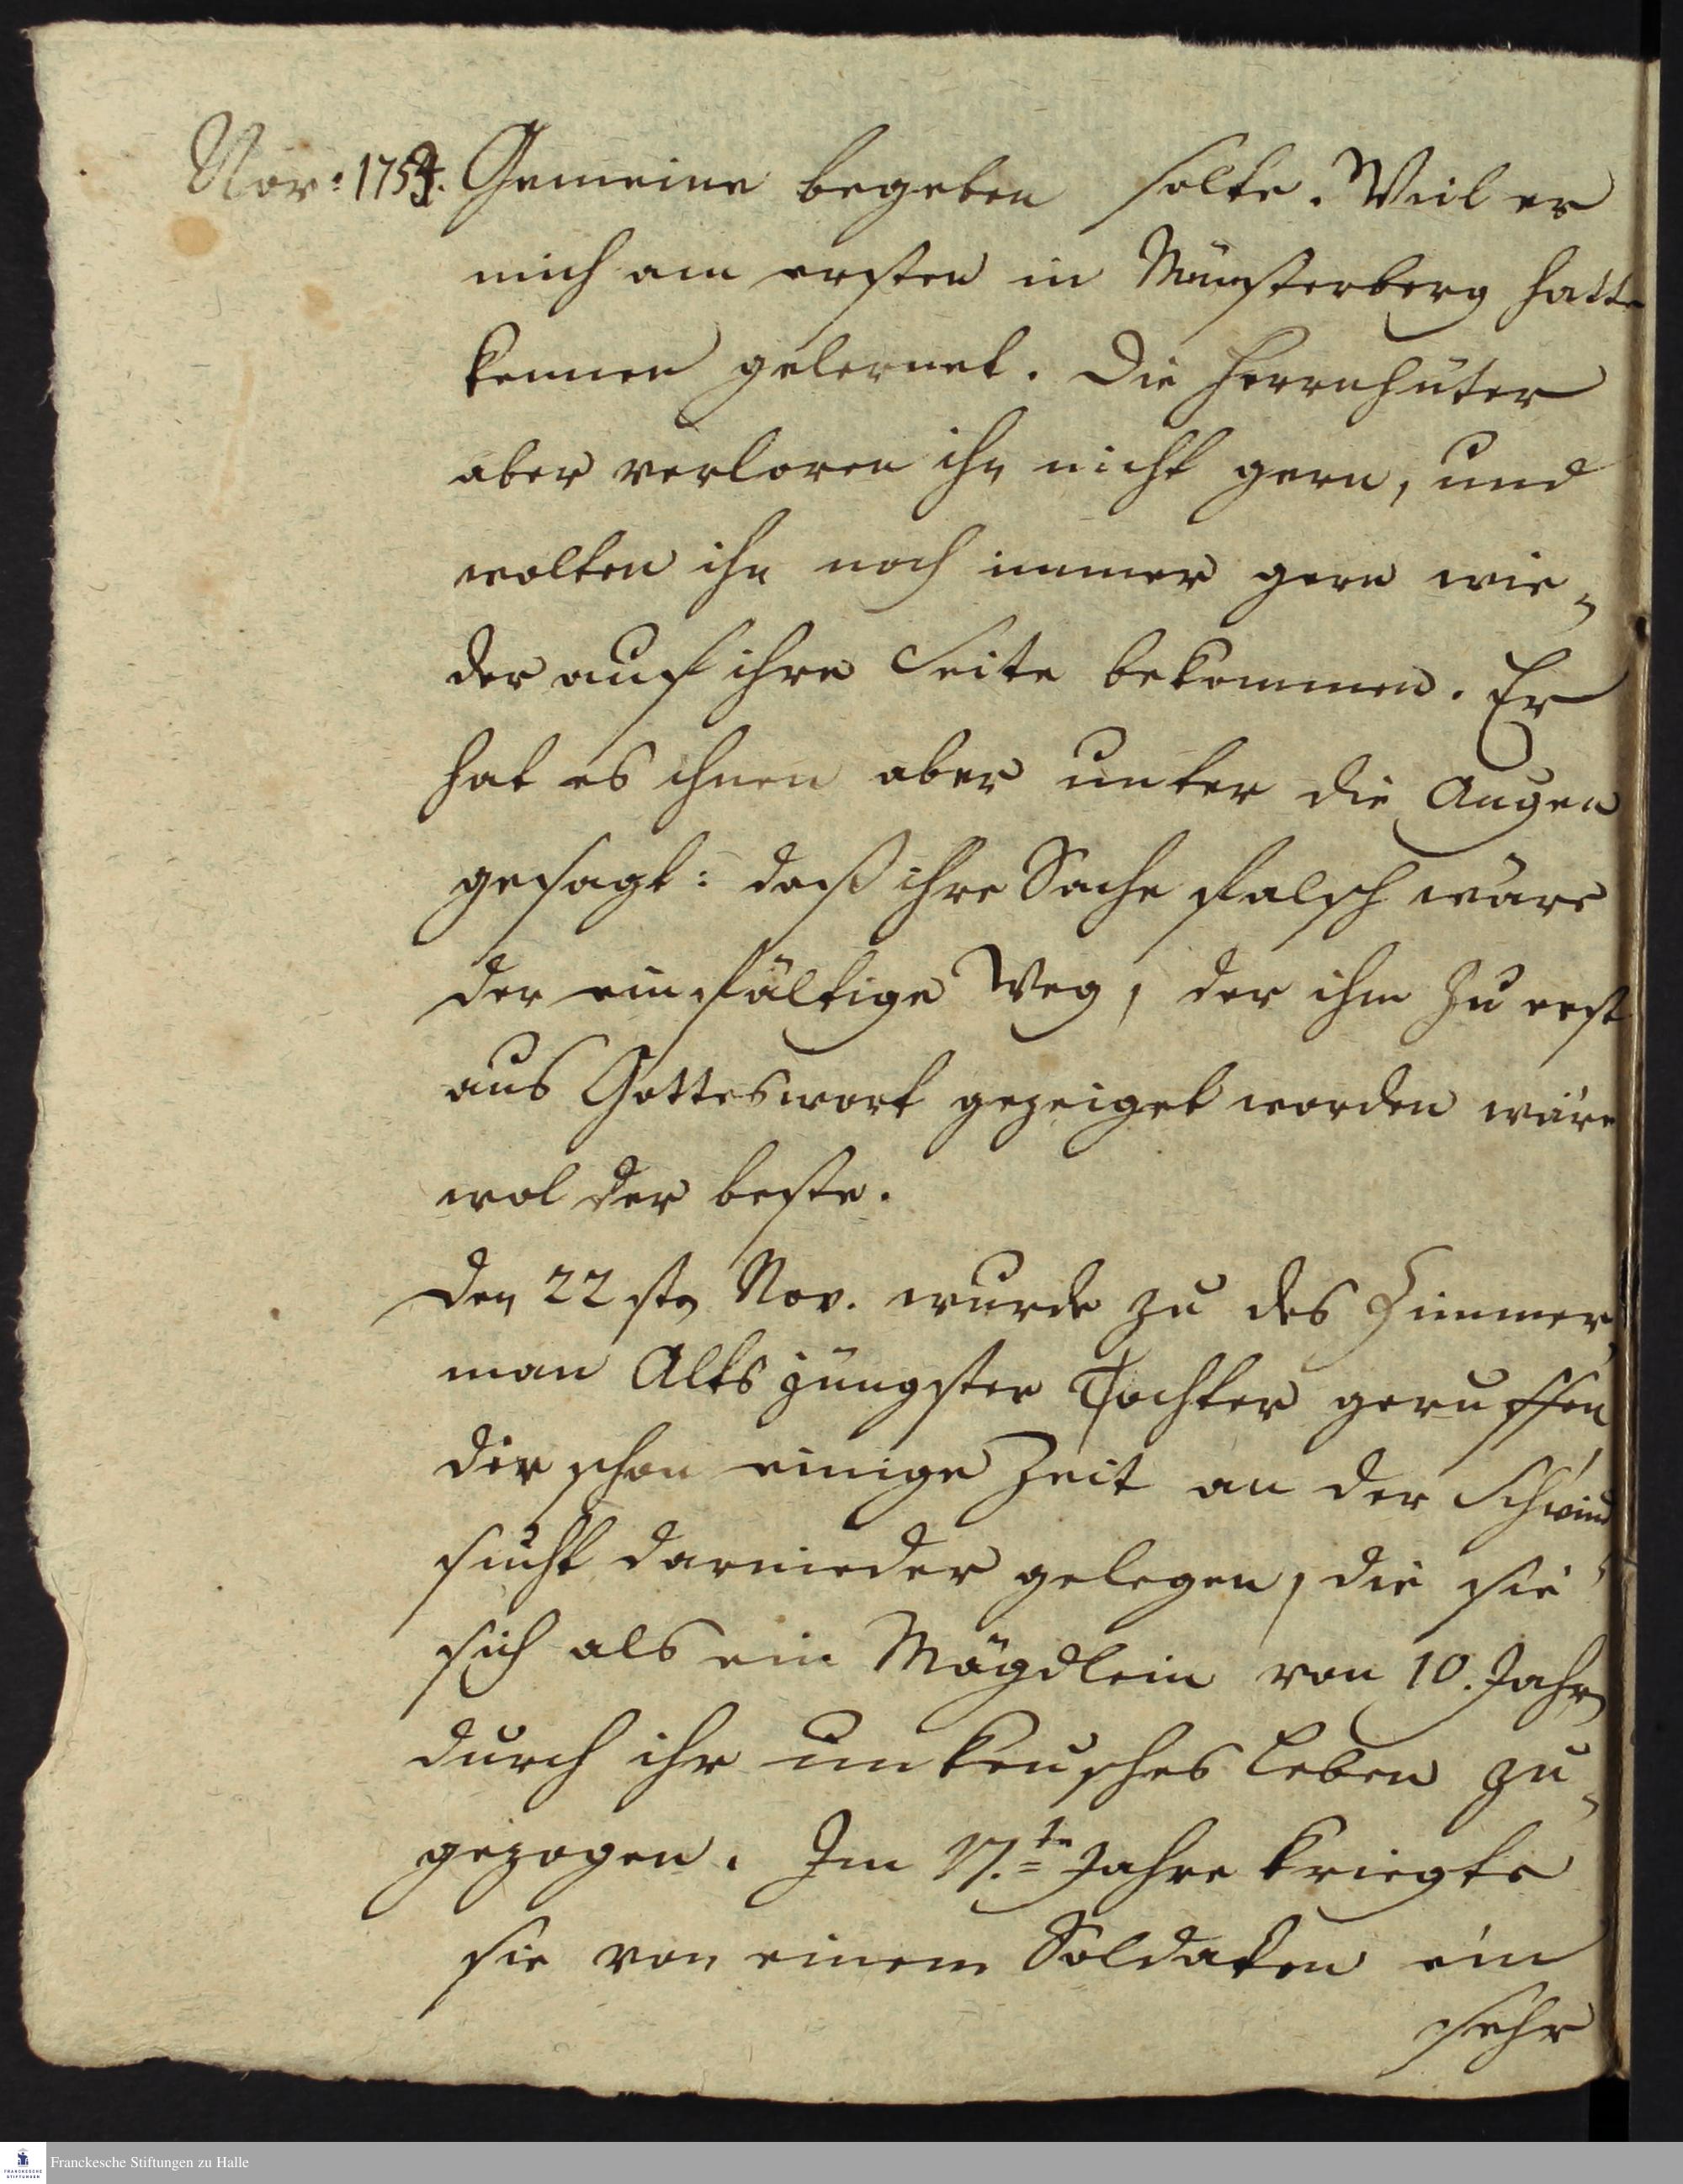 Nov: 1754. Gemeine begeben solte. Weil er
mich am ersten in Münsterberg hatte
kennen gelernet. Die Herrnhüter
aber verloren ihn nicht gern, und
wolten ihn noch immer gern wie„
der auf ihre Seite bekommen. Er
hat es ihnen aber unter die Augen
gesagt: daß ihre Sache falsch wäre
der einfältige Weg, der ihm zu erst
aus Gotteswort gezeiget worden wäre
wol der beste.
Den 22 sten Nov. wurde zu des Zimmer„
man Alts jüngster Tochter geruffen
die schon einige Zeit an der Schwind„
sucht darnieder gelegen, die sie
sich als ein Mägdlein von 10. Jahren
durch ihr unkeusches Leben zu„
gezogen. Im 17.ten Jahre kriegte
sie von einem Soldaten ein
sehr
Franckesche Stiftungen zu Halle
FRANCKESCHE
STIFTUNGEN